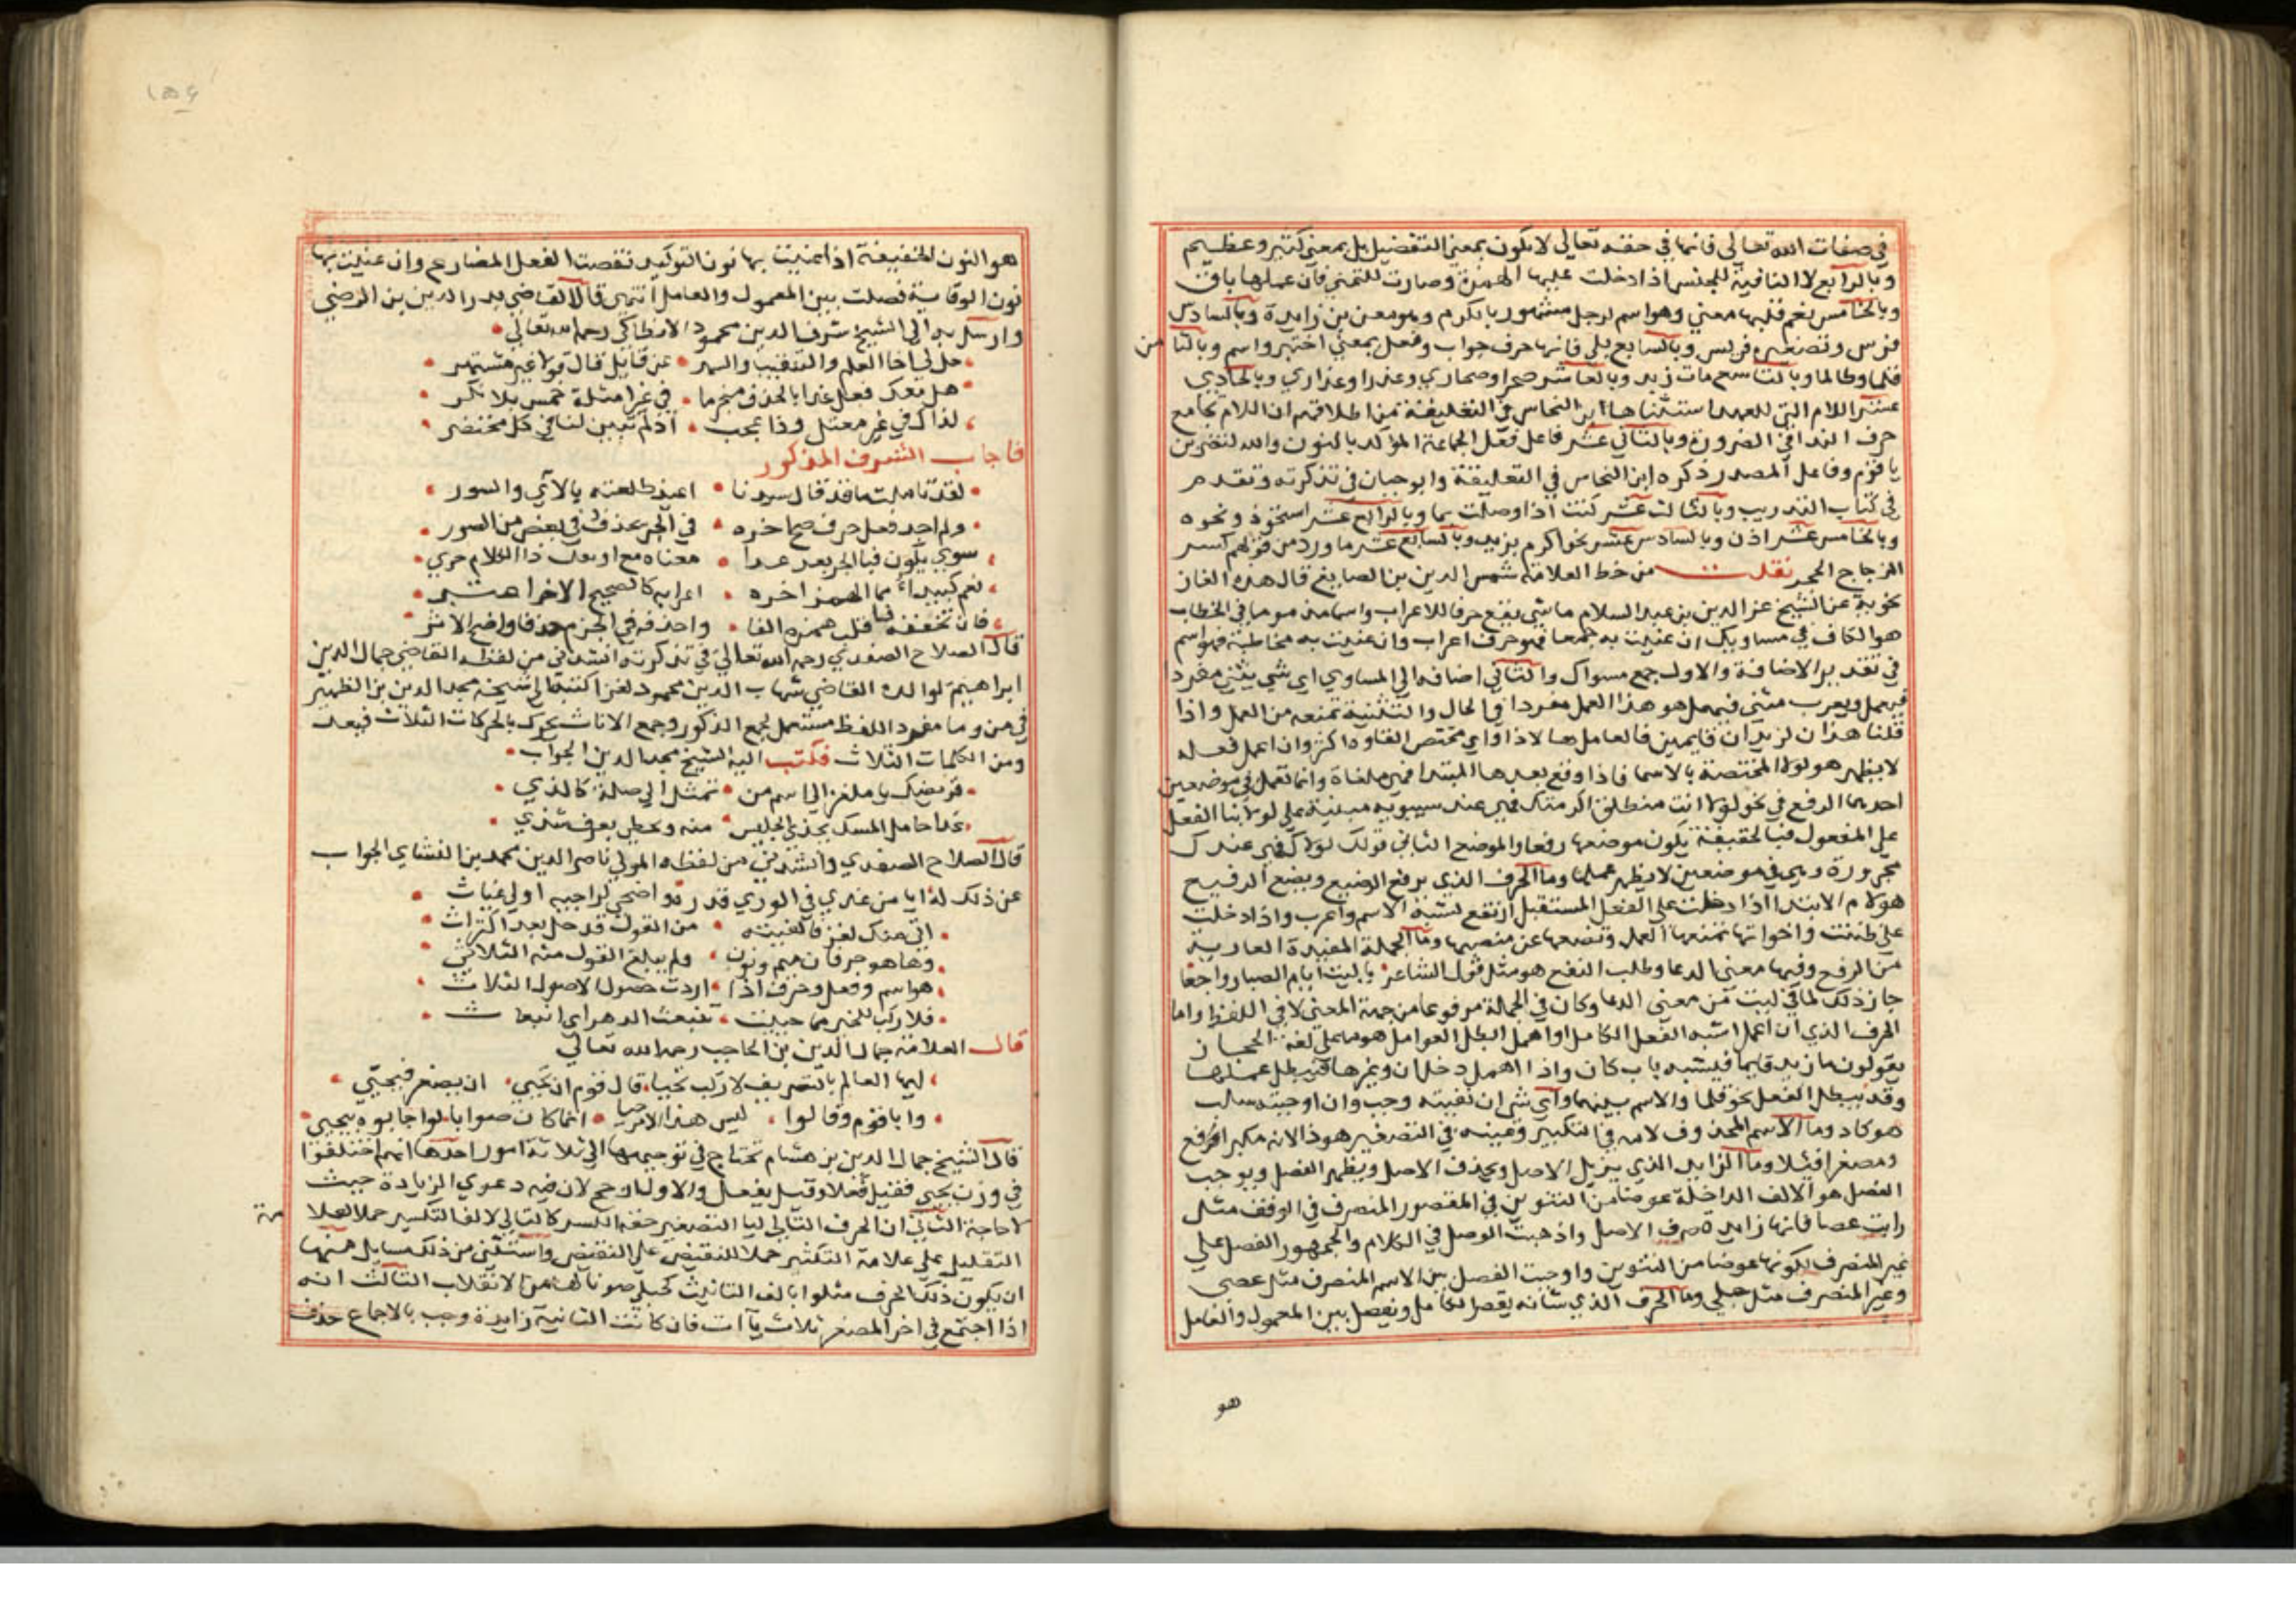 في صفات الله تعالى فانها في حقه تعالى لا تكون بمعنى التفضيل بل بمعنى كبير وعظيم
وبالرابع لا النافية للجنس اذا دخلت عليها الهمزة وصارت للتمني فان عملها باق
وبالخامس نعم قلبها معن وهو اسم لرجل مشهور بالكرم وهو معن بن زايدة وبالسادس
فرس وتصغيره فريس وبالسابع بلي فانها حرف جواب وفعل بمعنى اختبر واسم وبالثامن
قلما وطالما وبالتاسع مات زيد وبالعاشر صحرا وصحاري وعذرا وعذاري وبالحادي
عشر اللام التي للعهد استثناها ابن النحاس في التعليقة من اطلاقهم ان اللام تجامع
حرف الندا في الضرورة وبالثاني عشر فاعل فعل الجماعة المؤكد بالنون والله لتضربن
يا قوم وفاعل المصدر ذكره ابن النحاس في التعليقة وابو حيان في تذكرته وتقدم
في كتاب التدريب وبالثالث عشر كنت اذا وصلت بما وبالرابع عشر استحوذ ونحوه
وبالخامس عشر اذن وبالسادس عشر نحو اكرم بزيد وبالسابع عشر ما ورد من قولهم كسر
الزجاج الحجر نقلت من خط العلامة شمس الدين بن الصايغ قال هذه الغاز
نحوية عن الشيخ عز الدين بن عبد السلام ما شي يقع حرفا للاعراب واسما مضموما في الخطاب
هو الكاف في مساويك ان عنيت به جمعا فهو حرف اعراب وان عنيت به مخاطبة فهو اسم
في تقدير الاضافة والاول جمع مسواك والثاني اضافه الي المساوي اي شي يثني مفردا
فيعمل ويعرب مثنى فيهمل هو هذا العمل مفردا في الحال والتثنية تمنعه من العمل واذا
قلنا هذان لزيدان قايمين فالعامل ها لا ذا واي مختص الغاوه اكثر وان اعمل فعمله
لا يظهر هو لولا المختصة بالاسما فاذا وقع بعدها المبتدا فهي ملغاة وانما تعمل في موضعين
احدهما الرفع في نحو لولا انت منطلق اكرمتك فهي عند سيبويه مبنية علي لولا بنا الفعل
علي المفعول فبالحقيقة يكون موضعها رفعا والموضع الثاني قولك لولاك فهي عندك
مجرورة وهي في موضعين لا يظهر عملها وما الحرف الذي يرفع الوضيع ويضع الرفيع
هو لام الابتدا اذا دخلت علي الفعل المستقبل ارتفع لشبه الاسم واعرب واذا دخلت
علي ظننت واخواتها تمنعها العمل وتضعها عن منصبها وما الجملة المفيدة العارية
من الرفع وفيها معني الدعا وطلب النفع هو مثل قول الشاعر يا ليت ايام الصبا رواجعا
جاز ذلك لما في ليت من معني الدعا وكان في الجملة مرفوعا من جهة المعنى لا في اللفظ واما
الحرف الذي ان اعمل اشبه الفعل الكامل او اهمل ابطل العوامل هو ما علي لغة الحجاز
يقولون ما زيد قايما فيشبه باب كان واذا اهمل دخل ان وغيرها فيبطل عملها
وقد يبطل الفعل نحو قلما والاسم بينما واي شي ان نفيته وجب وان اوجبته سلب
هو كاد وما الاسم المحذوف لامه في التكبير وعينه في التصغير هو ذا لانه مكبرا فع
ومصغرا فيلا وما الزايد الذي يزيل الاصل ويحذف الاصل ويظهر الفصل ويوجب
الفصل هو الالف الداخلة عوضا من التنوين في المقصور المنصرف في الوقف مثل
رايت عصا فانها زايدة صرف الاصل واذهبت الوصل في الكلام والجمهور الفصل علي
غير المنصرف لكونها عوضا من التنوين واوجبت الفصل بين الاسم المنصرف مثل عصى
وغير المنصرف مثل حبلي وما الحرف الذي شانه يقصر الكامل ويفصل بين المعمول والعامل
هو
١٥٤
هو النون الخفيفة اذا عنيت بها نون التوكيد نقصت الفعل المضارع وان عنيت بها
نون الوقاية فصلت بين المعمول والعامل انتهى قال القاضي بدر الدين بن الرضي
وارسل به الى الشيخ شرف الدين محمود الانطاكي رحمه الله تعالي
سل لي اخا العلم والتنقيب والسهر عن قايل قال قولا غير مشتهر
هل نعرف فعل غدا بالحذف منجزما في غير امثلة خمس بلا نكر
لذاك في غير معتل وذا عجب اذ لم تبين لنا في كل مختصر
فاجاب الشرف المذكور
لقد تاملت ما قد قال سيدنا اعيذ طلعته بالآي والسور
ولم اجد فعل حرف صح اخره في الجزم يحذف في بعض من الصور
سوى يكون فبالجزم بعد غدا معناه مع او بعك ذا الكلام حري
نعم كيبدأ مما الهمز اخره اعرابه كالصحيح الاخر اعتبر
فان تخففه فيها قلب همزه الفا واحذفه في الجزم حذفا واضح الاثر
قال الصلاح الصفدي رحمه الله تعالى في تذكرته انشدني من لفظه القاضي جمال الدين
ابراهيم لوالده القاضي شهاب الدين محمود لغزا كتبه الي شيخه مجد الدين بن الظهير
في من وما مفرد اللفظ مستعمل لجمع الذكور وجمع الاناث يحرك بالحركات الثلاث فيعد
ومن الكلمات الثلاث فكتب اليه الشيخ مجد الدين الجواب
قريضك يا ملغزا لي اسم من تمثل الي صلة كالذي
غدا حامل المسك يحذي الجليس منه ويحظي بعرف شذي
قال الصلاح الصفدي وانشدني من لفظه المولي ناصر الدين محمد بن النشاي الجواب
عن ذلك له ايا من غدي في الوري قدره واضحى لراجيه اولي غياث
اتي منك لغز فالفيته من القول قد حل بعد اكتراث
وها هو حرفان ميم ونون ولم يبلغ القول منه الثلاث
هو اسم وفعل وحرف اذا اردت حصول الاصول الثلاث
فلا زلت للخير مهما حييت تنبعث الدهر اي انبعاث
قال العلامة جمال الدين بن الحاجب رحمه الله تعالي
ايها العالم بالتصريف لا زلت تحيا قال قوم ان يحيي ان يصغر فيحيي
وابا قوم وقالوا ليس هذا الامر حيا انما كان صوابا لو اجابوه بيحيي
قال الشيخ جمال الدين بن هشام تحتاج في توجيهها الي ثلاثة امور احدها انهم اختلفوا
في وزن يحيي فقيل فعلا وقيل يفعل والاول ارجح لان فيه دعوي الزيادة حيث
لا حاجة الثاني ان الحرف التالي ليا التصغير حقه الكسر كالتالي لالف التكسير حملا لعلامة
التقليل علي علامة التكثير حملا للنقيض علي النقيض واستثني من ذلك مسايل منها
ان يكون ذلك الحرف متلوا بالف التانيث كحبلي صونا لها من الانقلاب الثالث انه
اذا اجتمع في اخر المصغر ثلاث يآات فان كانت الثانية زايدة وجب بالاجماع حذف